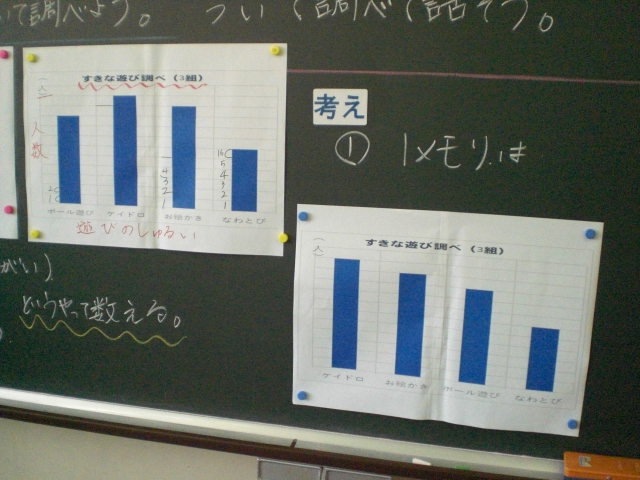 いて調べよう。
ついて調べて話そう。
すきな遊び調べ(3組)
(人)
人数
ボール遊び ケイドロ お絵かき なわとび
遊びのしゅるい
がい)
どうやって数える。
考え
① 1メモリは
すきな遊び調べ(3組)
(人)
ケイドロ お絵かき ボール遊び なわとび